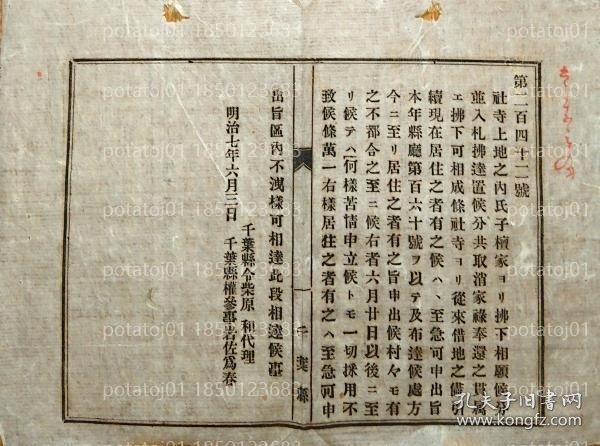 第二百四十二號
社寺上地之內氏子檀家ヨリ拂下相願候分
並入札拂達置候分共取消家祿奉還之貫屬
エ拂下可相成條社寺ヨリ從來借地之儘引
續現在居住之者有之候ハ、至急可申出旨
本年縣廳第百六十號ヲ以テ及布達候處方
今ニ至リ居住之者有之旨申出候村々モ有
之不都合之至ニ候右者六月廿日以後ニ至
リ候テハ何樣苦情申立候トモ一切採用不
致候條萬一右樣居住之者有之ハ至急可申
出旨區內不洩樣可相達此段相達候事
千葉縣令柴原和代理
明治七年六月三日 千葉縣權參事岩佐爲春
千葉縣
potatoj01 1850123683
孔夫子旧书网